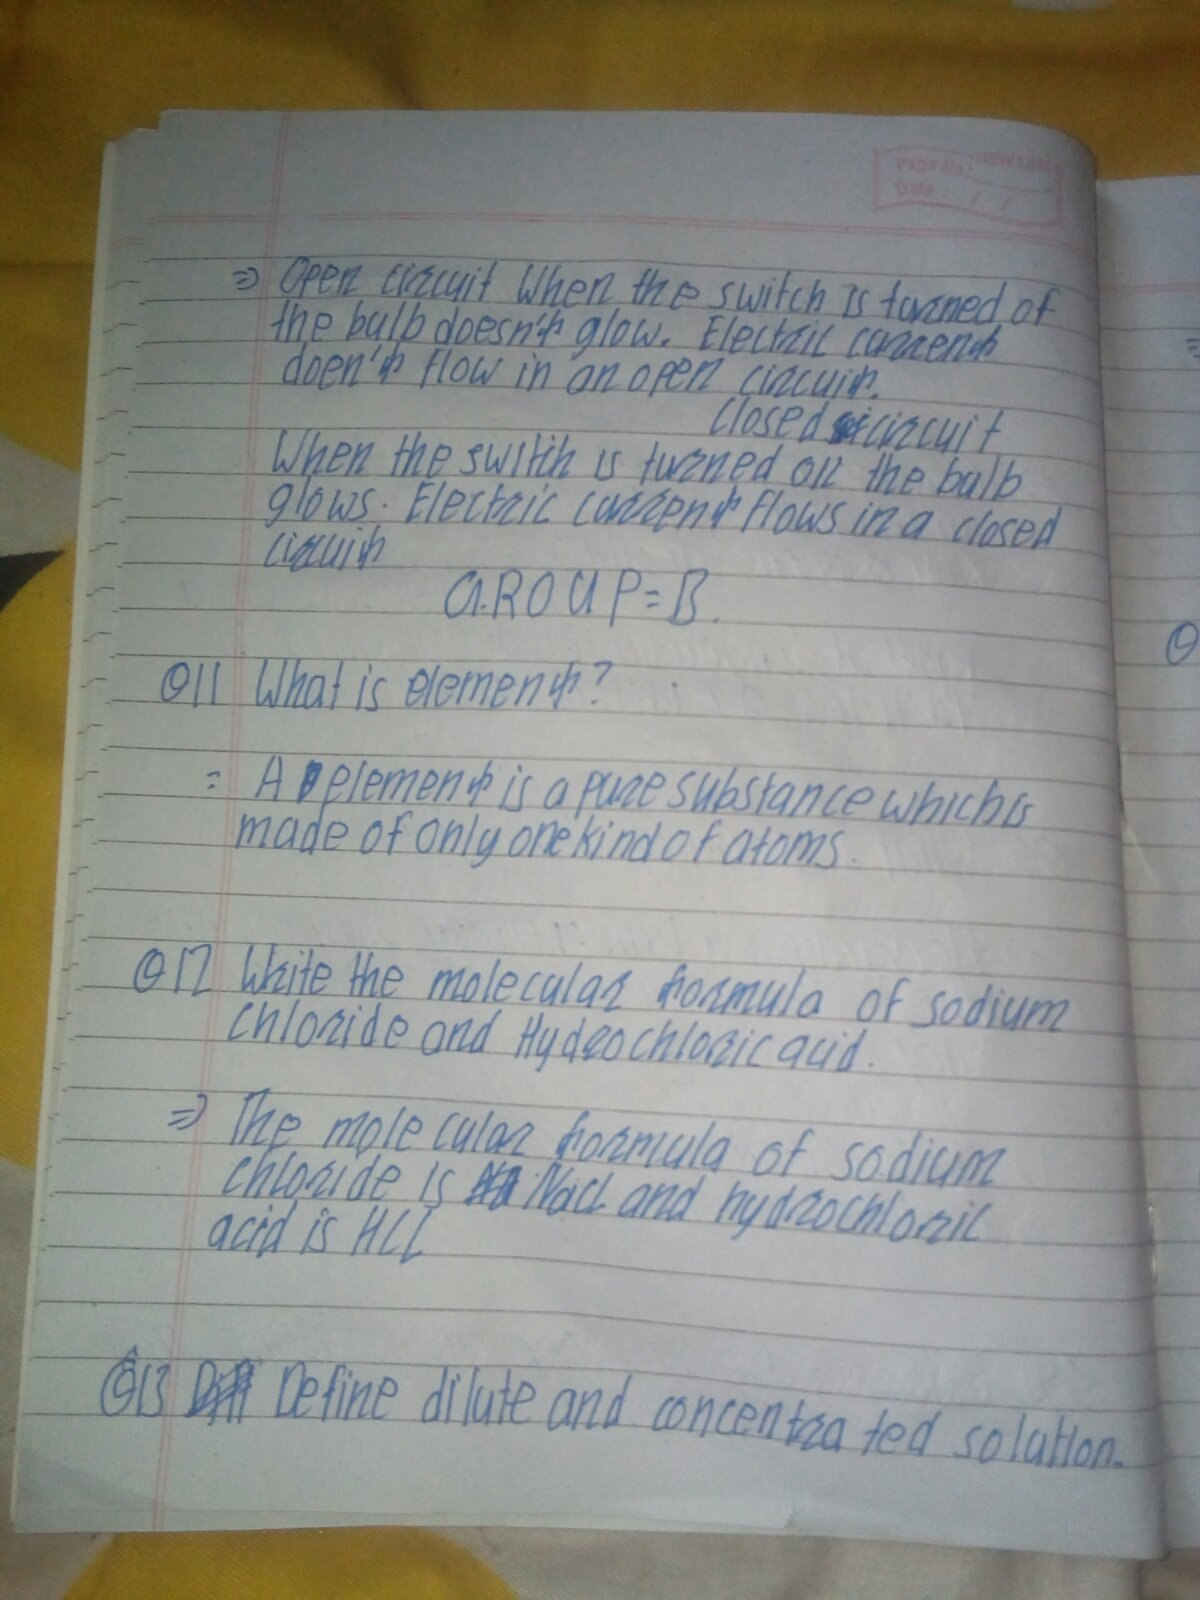 Page No.:
Date : / /
=> Open circuit When the switch is turned of
the bulb doesn't glow. Electric current
doen't flow in an open circuit.
closed circuit
When the switch is turned on the bulb
glows. Electric current flows in a closed
circuit
GROUP=B.
Q11 What is element?
= A element is a pure substance which is
made of only one kind of atoms.
Q12 Write the molecular formula of sodium
chloride and Hydrochloric acid.
=> The molecular formula of sodium
chloride is Nacl and hydrochloric
acid is HCl
Q13 Define dilute and concentrated solution.